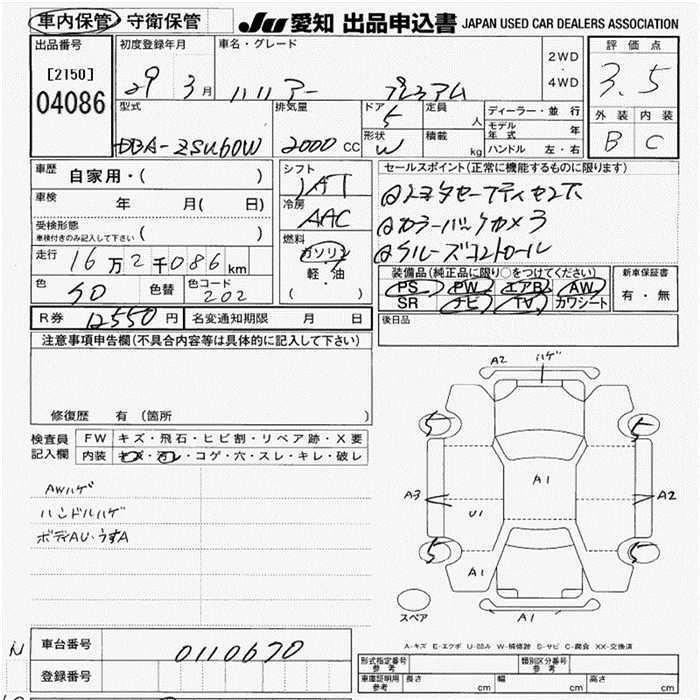 車内保管 守衛保管 JU 愛知 出品申込書 JAPAN USED CAR DEALERS ASSOCIATION
出品番号 初度登録年月 車名・グレード 評価点
[2150] 29 3月 ハリアー プレミアム 2WD・4WD 3.5
04086
型式 排気量 ドア 定員 ディーラー・並行 外装 内装
DBA-ZSU60W 2000 CC 5 人 モデル年式 年 B C
形状 積載 ハンドル 左・右
W kg
車歴 自家用・( ) シフト セールスポイント(正常に機能するものに限ります)
IAT ①トヨタセーフティセンス
車検 年 月( 日) 冷房 ②カラーバックカメラ
AAC ③クルーズコントロール
受検形態
車検付きのみ記入して下さい ( )
走行 16万2千086km 燃料 ガソリン 軽・油 ( )
装備品(純正品に限り○をつけてください) 新車保証書
色 色替 色コード PS PW エアB AW 有・無
202 SR ナビ TV カワシート
R券 12550円 名変通知期限 月 日 後日品
注意事項申告欄(不具合内容等は具体的に記入して下さい)
A2 ハゲ
修復歴 有 (箇所 )
5 5
検査員記入欄 FW キズ・飛石・ヒビ割・リペア跡・X要
内装 キズ・汚レ・コゲ・穴・スレ・キレ・破レ
A1
AWハゲ A3 A2
ハンドルハゲ U1
ボディAU・うすA
5 5
A1
スペア A1
A-キズ E-エクボ U-凹み W-補修跡 S-サビ C-腐食 XX-交換済
車台番号 0110670
型式指定番号 参考 類別区分番号 参考
登録番号 車庫証明用 参考 長さ cm 幅 cm 高さ cm